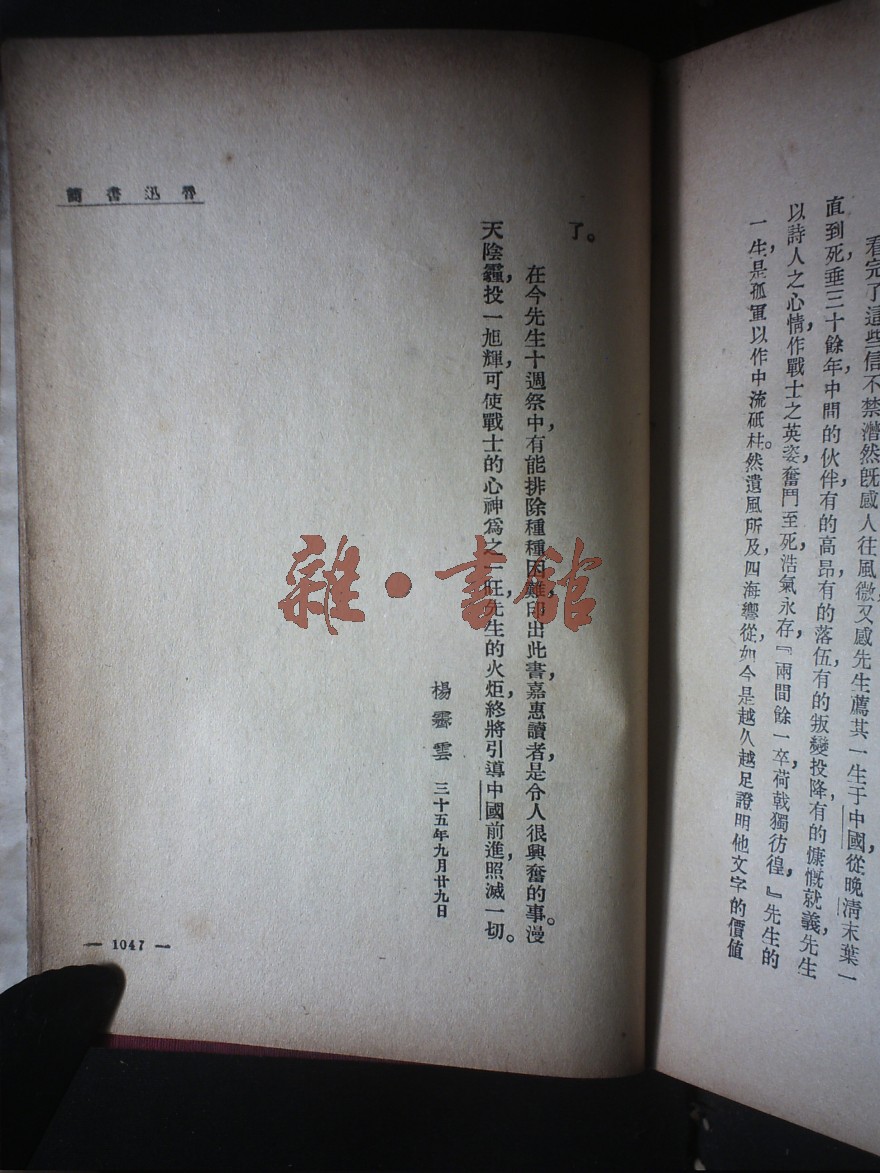 看完了這些信，不禁潸然，旣感人往風微，又感先生薦其一生于中國，從晚清末葉一
直到死，垂三十餘年，中間的伙伴，有的高昂，有的落伍，有的叛變投降，有的慷慨就義，先生
以詩人之心情，作戰士之英姿，奮鬥至死，浩氣永存，『兩間餘一卒，荷戟獨彷徨，』先生的
一生，是孤軍以作中流砥柱。然遺風所及，四海響從，如今是越久越足證明他文字的價值
了。
在今先生十週祭中，有能排除種種困難，印出此書，嘉惠讀者，是令人很興奮的事。漫
天陰霾，投一旭輝，可使戰士的心神爲之一旺，先生的火炬，終將引導中國前進，照滅一切。
楊霽雲 三十五年九月廿九日
魯迅書簡
— 1047 —
雜·書館